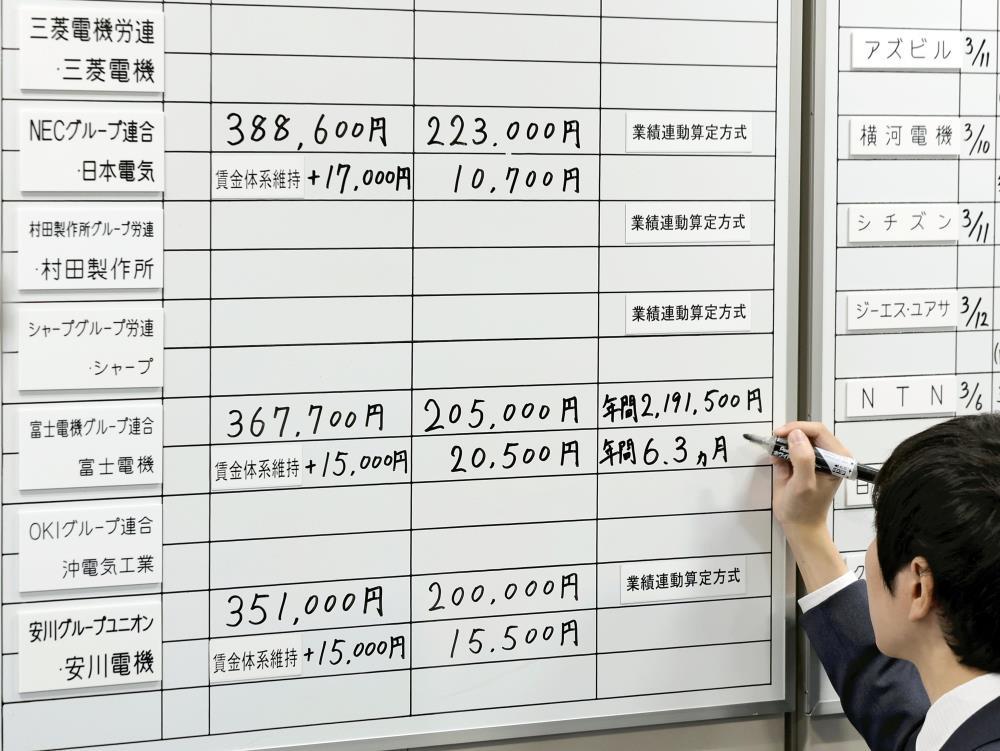 三菱電機労連
・三菱電機
NECグループ連合
・日本電気
388,600円
223.000円
業績連動算定方式
賃金体系維持 +17,000円
10,700円
村田製作所グループ労連
・村田製作所
業績連動算定方式
シャープグループ労連
・シャープ
業績連動算定方式
富士電機グループ連合
富士電機
367,700円
205,000円
年間2,191,500円
賃金体系維持 +15,000円
20,500円
年間6.3ヵ月
OKIグループ連合
沖電気工業
安川グループユニオン
・安川電機
351,000円
200,000円
業績連動算定方式
賃金体系維持 +15,000円
15,500円
アズビル 3/11
横河電機 3/10
シチズン 3/11
ジーエス・ユアサ 3/12
NTN 3/6